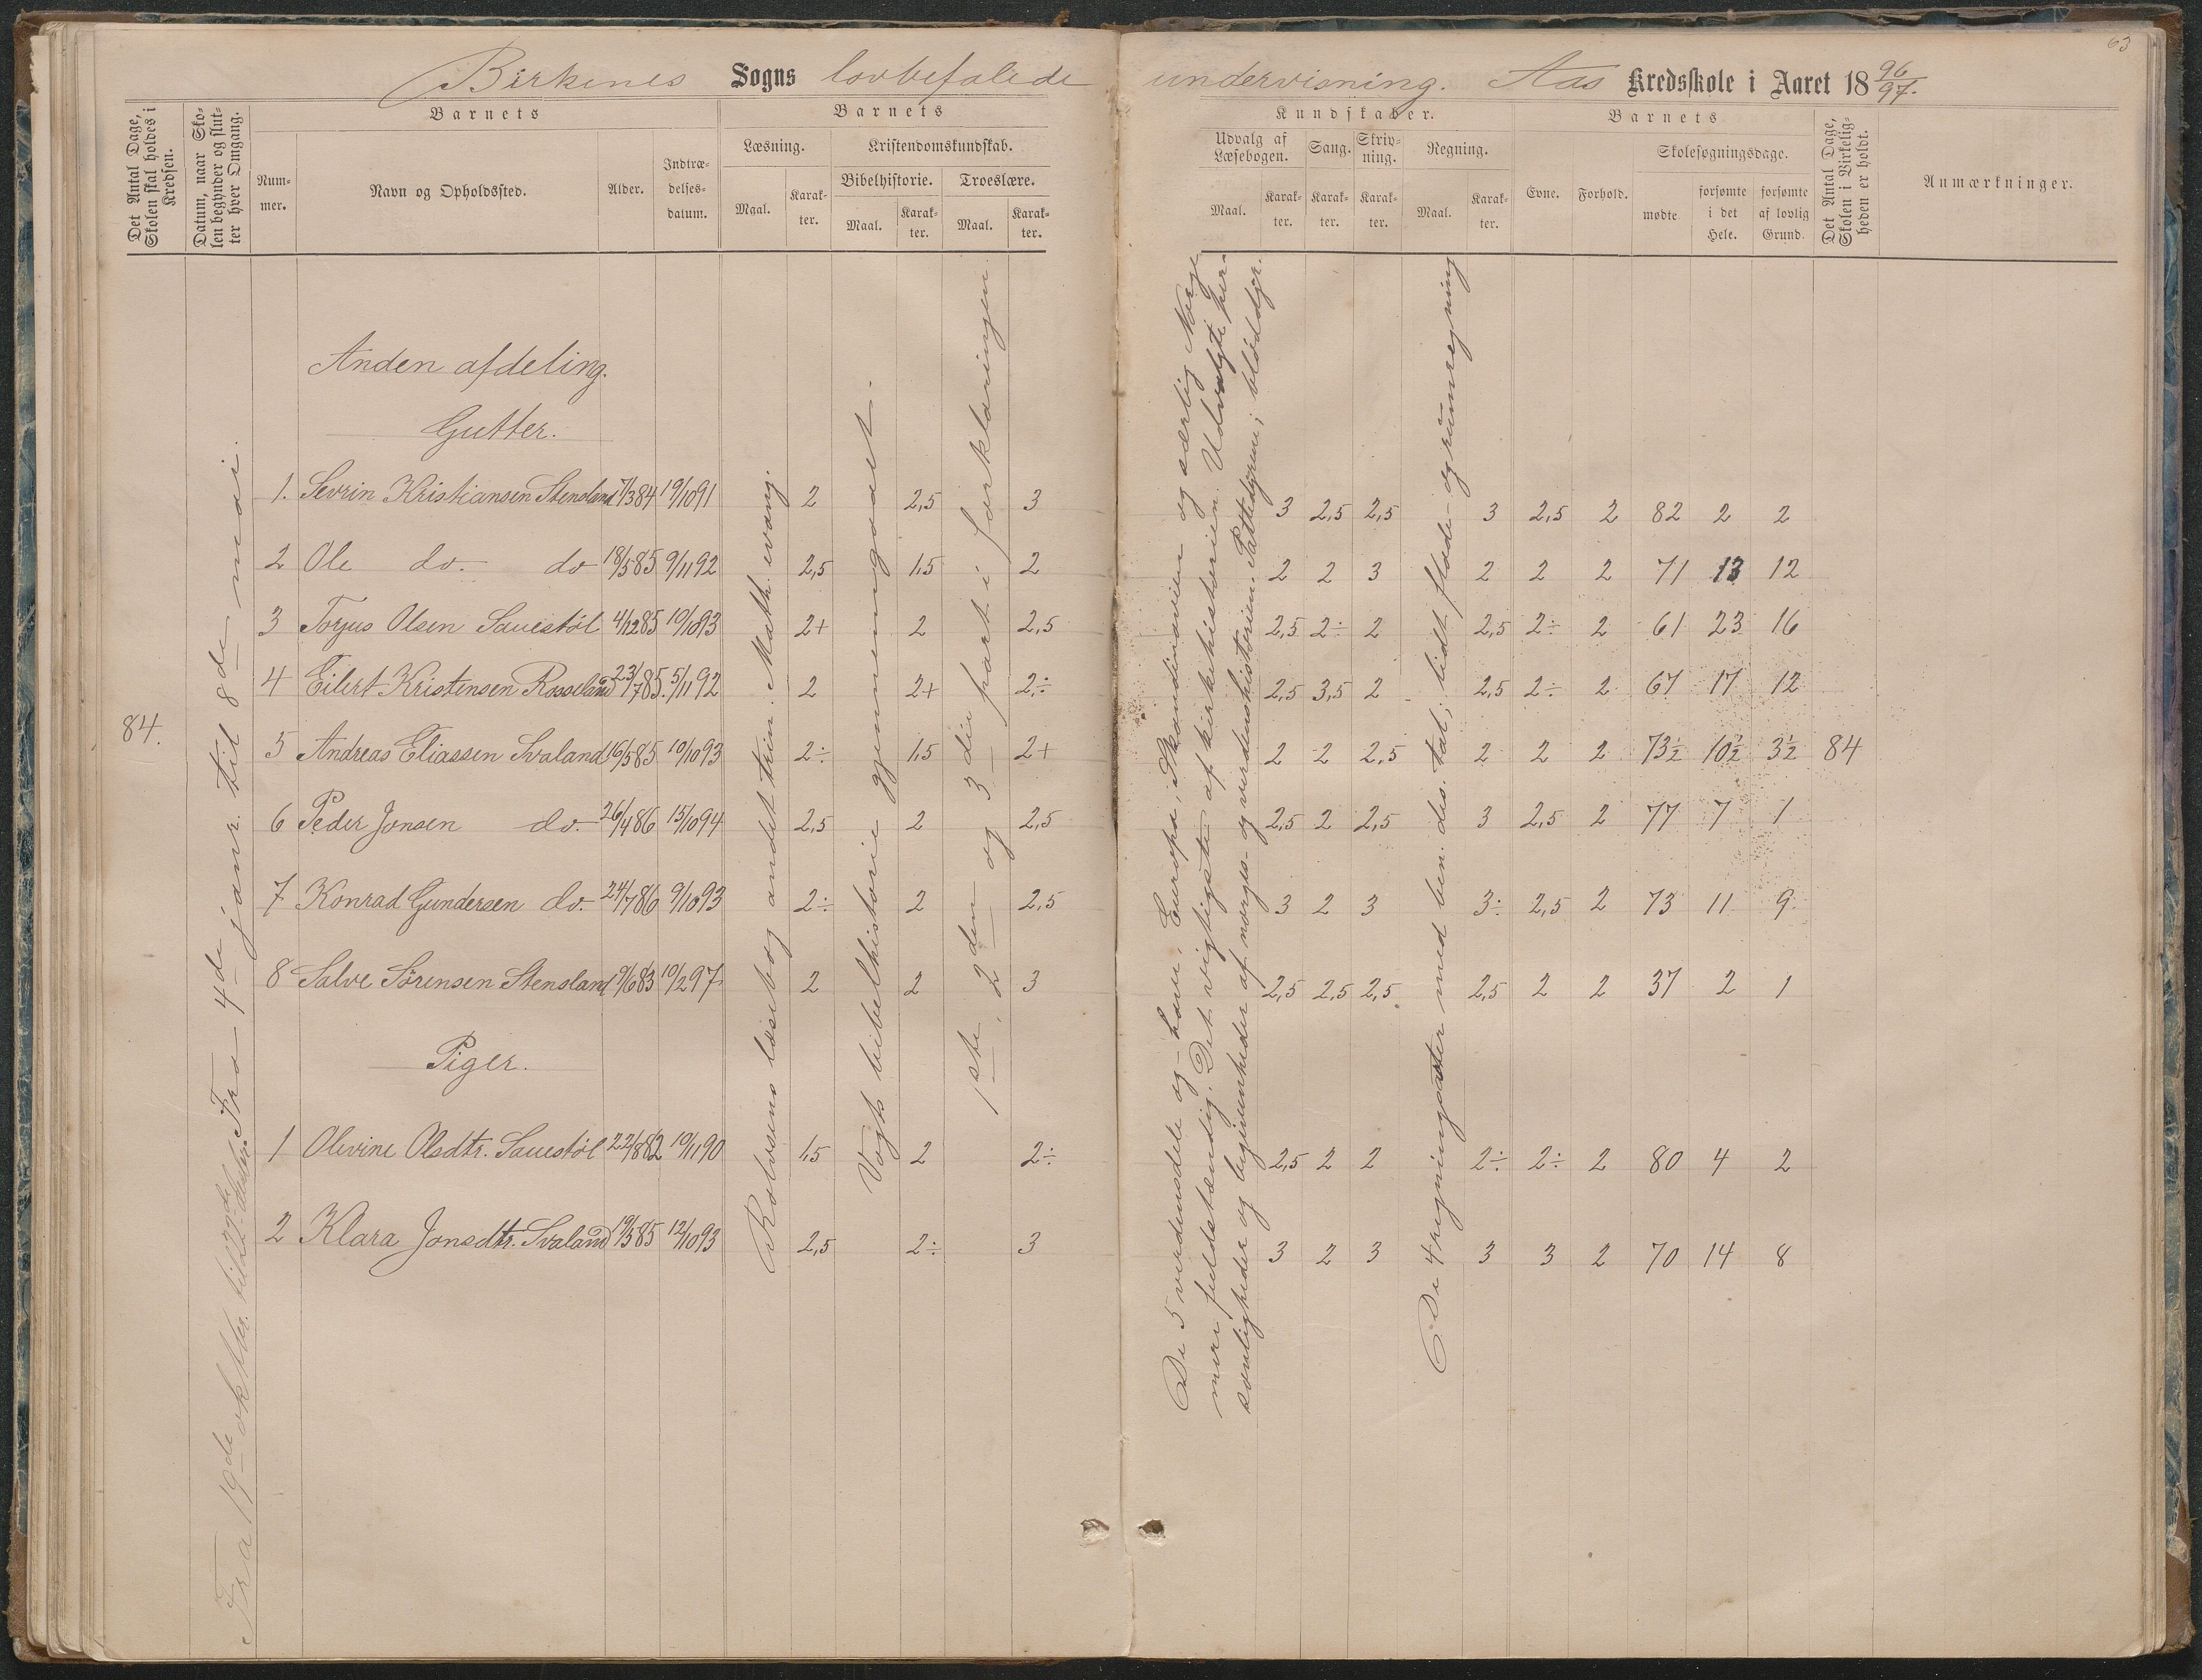 63
Birkenes Sogns lovbefalede undervisning. Aas Kredsskole i Aaret 18 96/97.
Det Antal Dage, Skolen skal holdes i Kredsen.
Datum, naar Skolen begynder og slutter hver Omgang.
Barnets
Nummer.
Navn og Opholdssted.
Alder.
Indtrædelsesdatum.
Barnets
Læsning.
Maal.
Karakter.
Kristendomskundskab.
Bibelhistorie.
Maal.
Karakter.
Troeslære.
Maal.
Karakter.
Kundskaber.
Udvalg af Læsebogen.
Maal.
Karakter.
Sang.
Karakter.
Skrivning.
Karakter.
Regning.
Maal.
Karakter.
Barnets
Evne.
Forhold.
Skolesøgningsdage.
mødte
forsømte i det Hele.
forsømte af lovlig Grund.
Det Antal Dage, Skolen i Virkeligheden er holdt.
Anmærkninger.
Anden afdeling.
Gutter.
1. Sevrin Kristiansen Stensland 7/3 84 19/10 91 2 2,5 3 3 2,5 2,5 3 2,5 2 82 2 2
2 Ole do. do 18/5 85 9/11 92 2,5 1,5 2 2 2 3 2 2 2 71 13 12
3 Torjus Olsen Sauestøl 4/12 85 10/10 93 2+ 2 2,5 2,5 2÷ 2 2,5 2÷ 2 61 23 16
4 Eilert Kristensen Rosseland 23/7 85. 5/11 92 2 2+ 2÷ 2,5 3,5 2 2,5 2÷ 2 67 17 12
84.
5 Andreas Eliassen Svaland 16/5 85 10/10 93 2÷ 1,5 2+ 2 2 2,5 2 2 2 73½ 10½ 3½ 84
6 Peder Jonsen do. 26/4 86 15/10 94 2,5 2 2,5 2,5 2 2,5 3 2,5 2 77 7 1
7 Konrad Gundersen do. 24/7 86 9/10 93 2÷ 2 2,5 3 2 3 3÷ 2,5 2 73 11 9
8 Salve Sørensen Stensland 9/6 83 10/2 97 2 2 3 2,5 2,5 2,5 2,5 2 2 37 2 1
Piger.
1 Olivine Olsdtr. Sauestøl 22/8 82 10/11 90 1,5 2 2÷ 2,5 2 2 2÷ 2÷ 2 80 4 2
2 Klara Jonsdtr. Svaland 19/5 85 12/10 93 2,5 2÷ 3 3 2 3 3 3 2 70 14 8
Fra 19de oktbr. til
Fra 4de janr. til 8de mai.
Rolvsens læsebog andet trin. Math. evang.
Vogts bibelhistorie gjennemgaaet.
1ste, 2den og 3die part i forklaringen
De 5 verdensdele og -have. Europa, Skandinavien og særlig Norge
mere fuldstændig. Det vigtigste af kirkehistorien. Udvalgte per-
sonligheder og begivenheder af norges- og verdenshistorien. Pattedyrene; bløddyr.
De 4 regningsarter med ben. des. tal; lidt flade- og rumregning